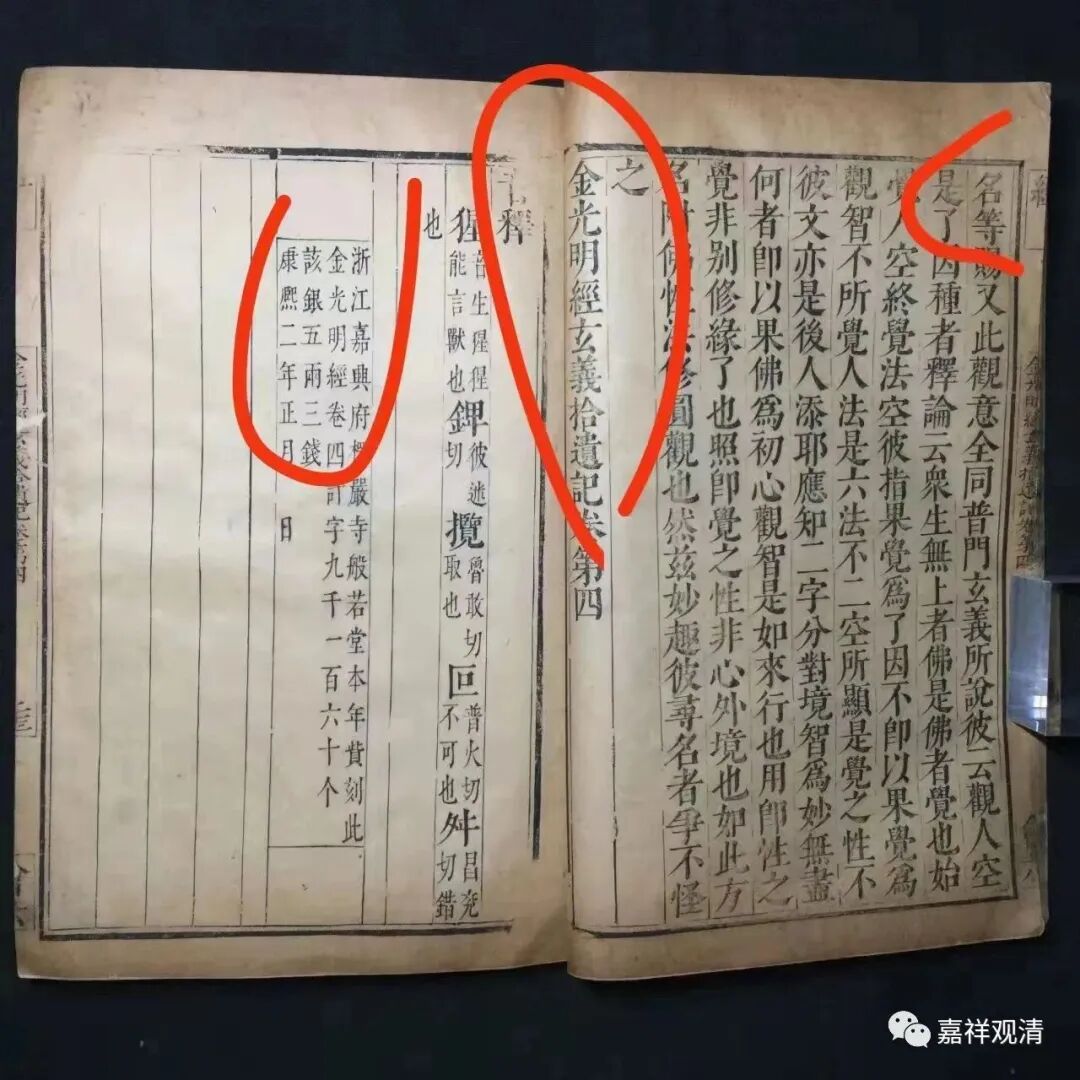 名等賜又此觀意全同普門玄義所說彼云觀人空
是了因種者釋論云衆生無上者佛是佛者覺也始
覺人空終覺法空彼指果覺爲了因不即以果覺爲
觀智不所覺人法是六法不二空所顯是覺之性不
彼文亦是後人添耶應知二字分對境智爲妙無盡
何者即以果佛爲初心觀智是如來行也用即性之
覺非别修緣了也照即覺之性非心外境也如此方
名附佛性法修圓觀也然兹妙趣彼尋名者爭不怪
之
金光明經玄義拾遺記卷第四
音釋
猩 音生猩猩能言獸也 鉀 彼迷切 攬 魯敢切取也 叵 普火切不可也 舛 昌兖切錯也
浙江嘉興府楞嚴寺般若堂本年費刻此
金光明經卷四計字九千一百六十个
該銀五兩三錢
康熙二年正月 日
嘉祥观清